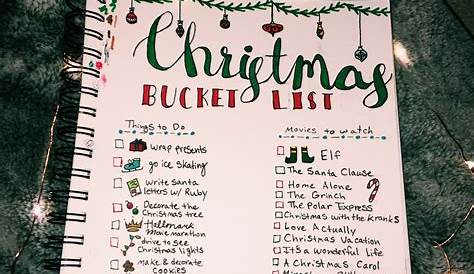 Christmas
BUCKET LIST
Things to Do
wrap presents
go ice skating
write santa
letters w/ Ruby
Decorate the
Christmas tree
Hallmark
Movie marathon
drive to see
Christmas lights
make & decorate
cookies
Movies to watch
Elf
The Santa Clause
Home Alone
The Grinch
The Polar Express
Christmas with the Kranks
Love Actually
Christmas Vacation
It's a wonderful Life
A Christmas Carol